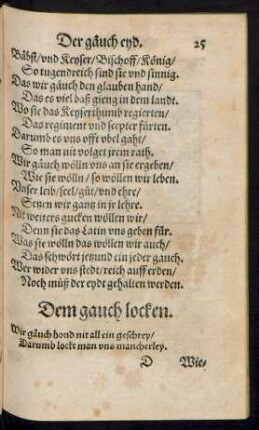 Der gäuch eyd. 25
Bäbst/vnd Keyser/Bischoff/König/
So tugendreich sind sie vnd sinnig.
Das wir gäuch den glauben hand/
Das es viel baß gieng in dem landt.
Wo sie das Keyserthumb regierten/
Das regiment vnd scepter fürten.
Darumb es vns offt vbel gaht/
So man nit volget jrem rath.
Wir gäuch wölln vns an sie ergeben/
Wie sie wölln/ so wöllen wir leben.
Vnser leib/seel/güt/vnd ehre/
Setzen wir gantz in jr lehre.
Nit weiters gucken wöllen wir/
Denn sie das Latin vns geben für.
Was sie wölln das wöllen wir auch/
Das schwört jetzund ein jeder gauch.
Wer wider vns stedt/reich auff erden/
Noch müß der eydt gehalten werden.
Dem gauch locken.
Wir gäuch hond nit all ein geschrey/
Darumb lockt man vns mancherley.
D Wie-